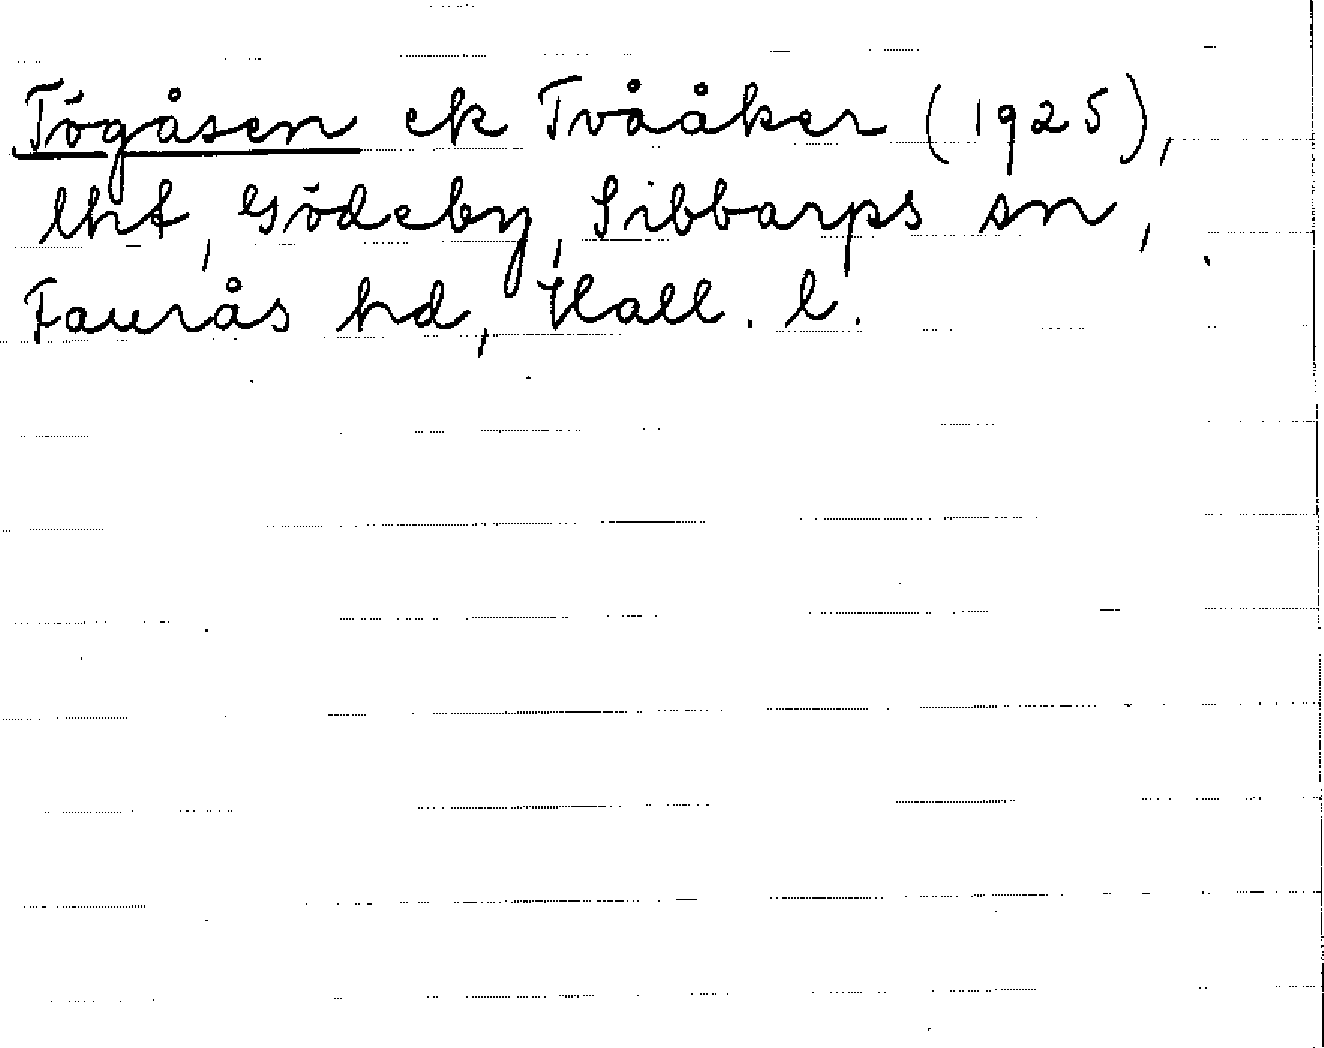 Tögåsen ek Tvååker (1925),
lht, Gödeby, Sibbarps sn,
Faurås hd, Hall. l.